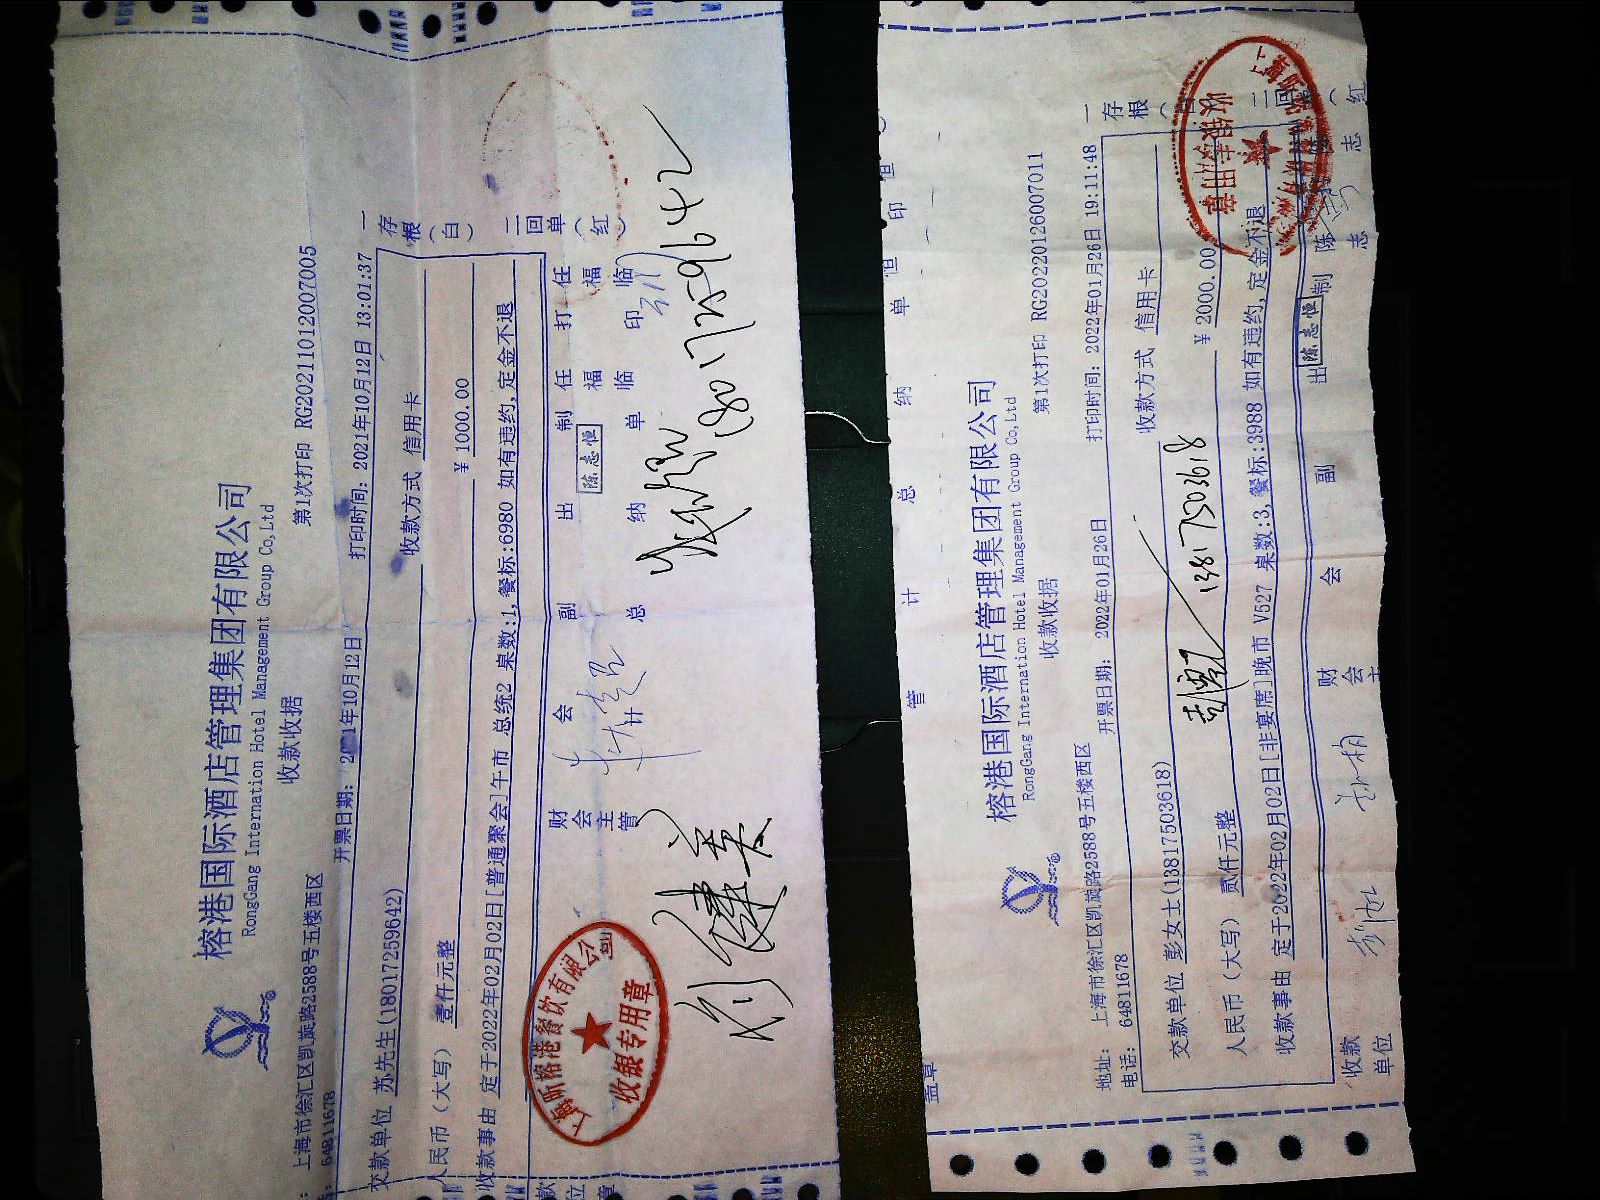 榕港国际酒店管理集团有限公司
RongGang International Hotel Management Group Co,Ltd
收款收据
第1次打印 RG20211012007005
上海市徐汇区凯旋路2588号五楼西区
64811678
开票日期: 2021年10月12日
打印时间: 2021年10月12日 13:01:37
交款单位 苏先生(18017259642)
收款方式 信用卡
人民币（大写） 壹仟元整
¥ 1000.00
收款事由 定于2022年02月02日[普通聚会]午市 总统2 桌数:1,餐标:6980 如有违约,定金不退
一存根（白） 二回单（红）
财会主管
会计
副总
出纳
陈志恒
制单
任福临
打印
任福临
上海昕榕港餐饮有限公司
收银专用章
18017259642
榕港国际酒店管理集团有限公司
RongGang International Hotel Management Group Co,Ltd
收款收据
第1次打印 RG20220126007011
地址: 上海市徐汇区凯旋路2588号五楼西区
电话: 64811678
开票日期: 2022年01月26日
打印时间: 2022年01月26日 19:11:48
交款单位 彭女士(13817503618)
收款方式 信用卡
人民币（大写） 贰仟元整
¥ 2000.00
收款事由 定于2022年02月02日[非宴席]晚市 V527 桌数:3,餐标:3988 如有违约,定金不退
13817503618
一存根
二回
（红
收款单位
财会主
会
副
出
陈志恒
制
陈志
收银专用章